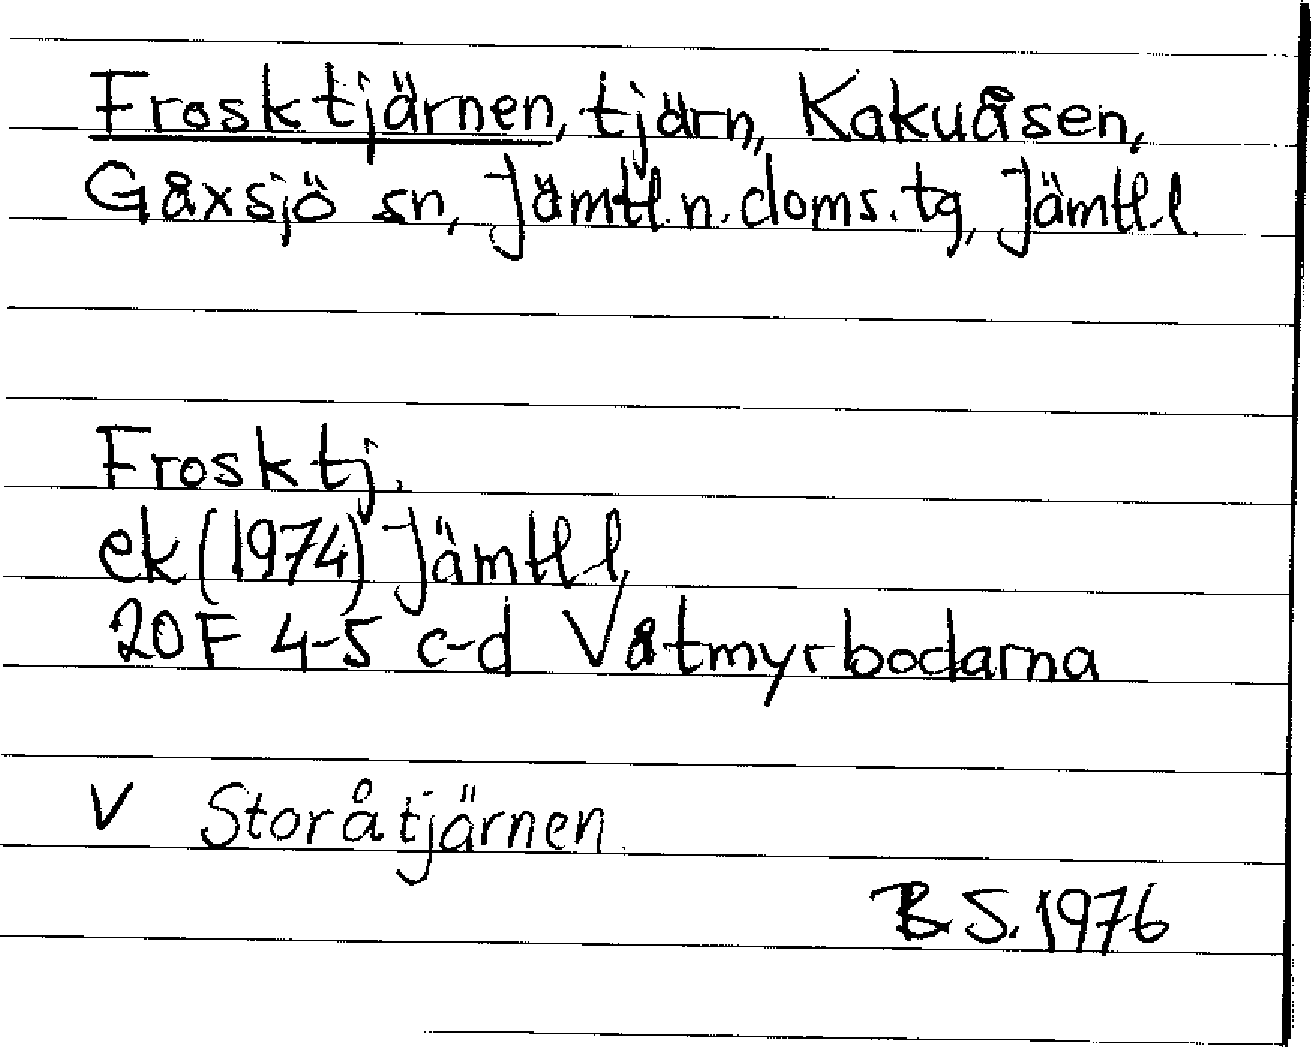 Frosktjärnen, tjärn, Kakuåsen,
Gåxsjö sn, Jämtl.n.doms.tg, Jämtl.l.
Frosktj.
ek (1974) Jämtl l,
20F 4-5 c-d Våtmyrbodarna
V Storåtjärnen.
B S. 1976